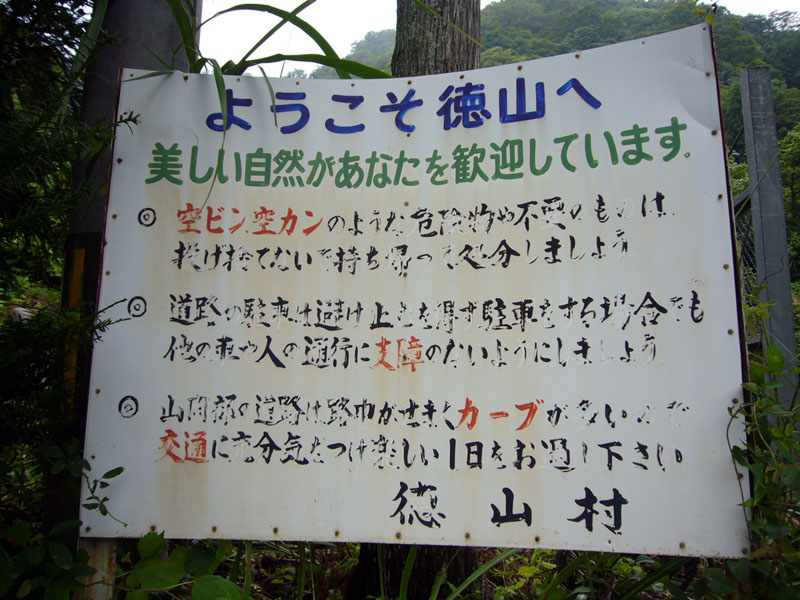 ようこそ徳山へ
美しい自然があなたを歓迎しています。
◎ 空ビン空カンのような危険物や不要のものは
投げ捨てないで持ち帰って処分しましょう
◎ 道路の駐車は避け止むを得ず駐車をする場合でも
他の車や人の通行に支障のないようにしましょう
◎ 山間部の道路は路巾がせまくカーブが多いので
交通に充分気をつけ楽しい1日をお過し下さい
徳山村